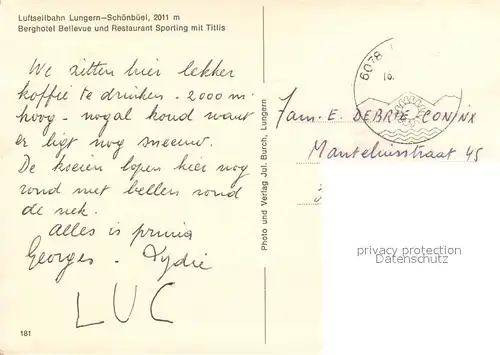 Luftseilbahn Lungern–Schönbüel, 2011 m
Berghotel Bellevue und Restaurant Sporting mit Titlis
We zitten hier lekker
koffie te drinken - 2000 m.
hoog - nogal koud want
er ligt nog sneeuw.
De koeien lopen hier nog
rond met bellen rond
de nek.
Alles is prima
Georges - Lydie
LUC
181
Photo und Verlag Jul. Burch, Lungern
6078
Fam. E. DEBRIE-CONINX
Manteliusstraat 45
privacy protection
Datenschutz